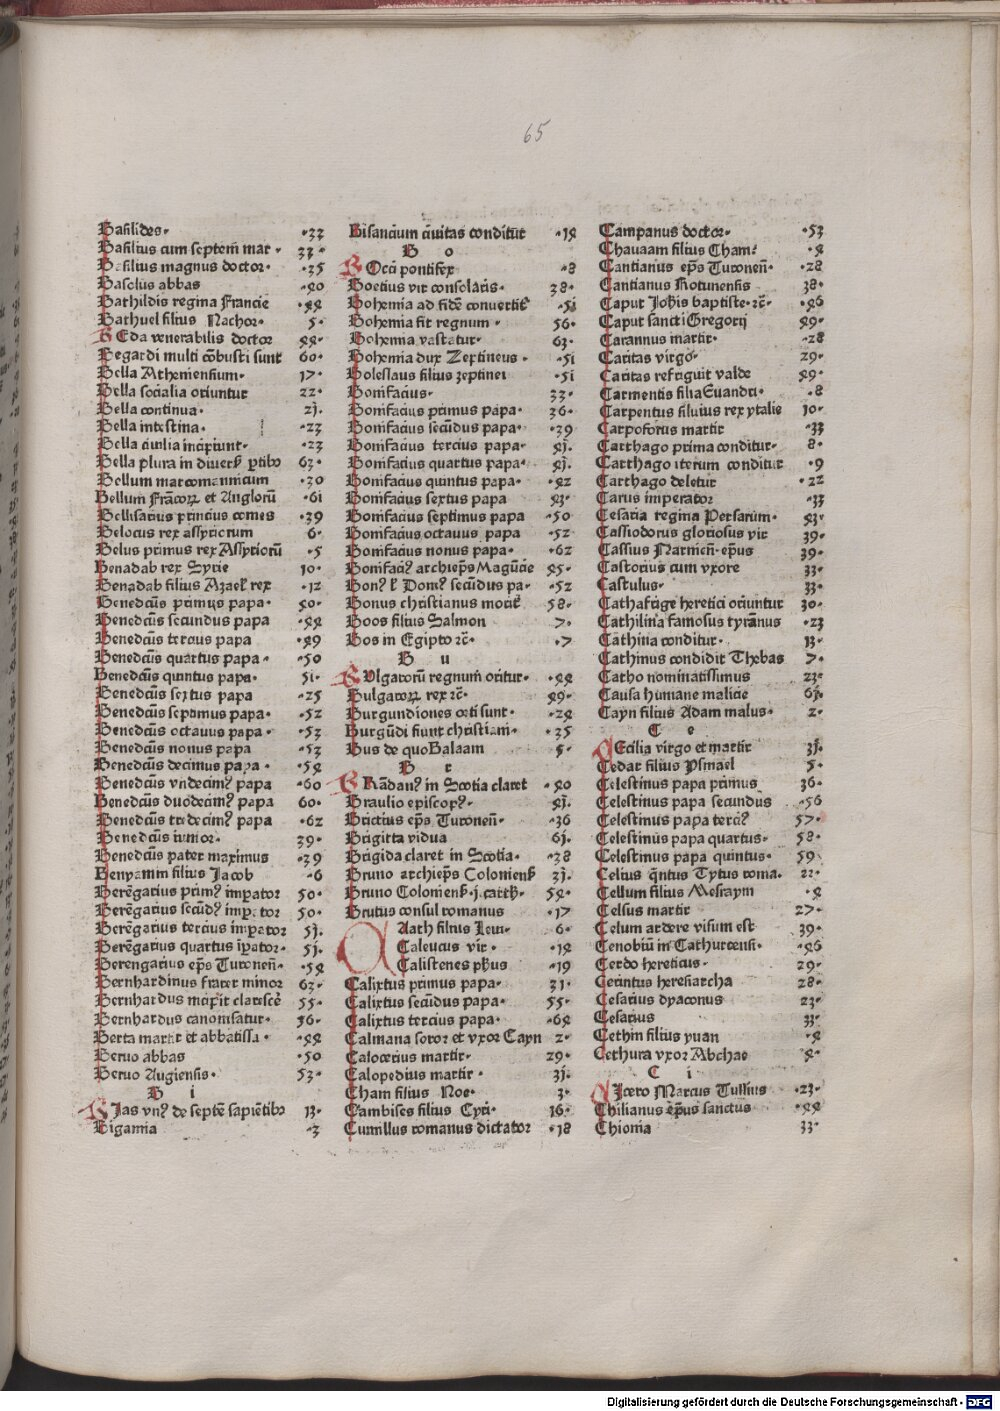 65
Basilides· ·33
Basilius cum septem̄ mar· 33·
Basilius magnus doctor· ·35
Basolus abbas ·40
Bathildis regina Francie ·44
Bathuel filius Nachor· 5·
BEda venerabilis doctor 44·
Begardi multi cōbusti sunt 60·
Bella Atheniensium· 17·
Bella socialia oriuntur 22·
Bella continua· 2j.
Bella intestina· ·23
Bella ciuilia incipiunt· ·23
Bella plura in diuers̄ ꝑtibꝰ 63·
Bellum marcomannicum ·30
Bellum Frācoꝝ et Anglorū ·61
Bellisarius princius comes ·39
Belocus rex assyriorum 6·
Belus primus rex Assyriorū ·5
Benadab rex Syrie 10·
Benadab filius Azael rex ·12
Benedcūs primus papa· 40·
Benedcūs secundus papa ·44
Benedcūs tercius papa ·49
Benedcūs quartus papa· ·50
Benedcūs quintus papa· 5i·
Benedcūs sextus papa ·25
Benedcūs septimus papa· ·52
Benedcūs octauus papa· ·53
Benedcūs nonus papa ·53
Benedcūs decimus papa· ·54
Benedcūs vndecimꝰ papa ·60
Benedcūs duodecimꝰ papa 60·
Benedcūs tredecimꝰ papa ·62
Benedcūs iunior· 39·
Benedcūs pater maximus ·39
Benyamin filius Jacob ·6
Berēgarius primꝰ imperator 50·
Berēgarius secūdꝰ imperator 50·
Berēgarius tercius imperator 5j.
Berēgarius quartus īperator· 5j.
Berengarius ep̄s Turonen̄· ·54
Bernhardinus frater minor 63·
Bernhardus incipit clarescē 55·
Bernhardus canonisatur· 36·
Berta martir et abbatissa· ·44
Beruo abbas ·50
Beruo Augiensis· 53·
B i
BIas vnꝰ de septē sapiētibꝰ 13·
Bigamia ·3
Bisancium ciuitas conditur ·14
B o
BOcci pontifex ·8
Boetius vir consolaris· 38·
Bohemia ad fidē conuertit̄ ·5i
Bohemia fit regnum· 56·
Bohemia vastatur· 63·
Bohemia dux Zeptineus· ·5i
Boleslaus filius zeptinei ·5i
Bonifacius· 33·
Bonifacius primus papa· 36·
Bonifacius secūdus papa· ·39
Bonifacius tercius papa· 4j.
Bonifacius quartus papa· 4j.
Bonifacius quintus papa· ·42
Bonifacius sextus papa 43·
Bonifacius septimus papa ·50
Bonifacius octauus papa ·52
Bonifacius nonus papa· ·62
Bonifaciꝰ archiep̄s Magūcie 45·
Bonꝰ l̄ Domꝰ secūdus pa· ·52
Bonus christianus morit̄ 58·
Boos filius Salmon 7·
Bos in Egipto ꝛc̄· ·7
B u
BUlgarorū regnum oritur· ·44
Bulgaroꝝ rex ꝛc̄· 49·
Burgundiones orti sunt· ·24
Burgūdi fiunt christiani· ·35
Bus de quo Balaam 5·
B r
BRādanꝰ in Scotia claret ·40
Braulio episcopꝰ· 4j.
Brictius ep̄s Turonen̄· ·36
Brigitta vidua 6j.
Brigida claret in Scotia· ·38
Bruno archiep̄s Coloniens̄ 3j.
Bruno Coloniens̄ ·j. carth· 54·
Brutus consul romanus ·17
CAath filius Leui· 6·
Caleucus vir· ·14
Calistenes ph̄us ·19
Calixtus primus papa· 31·
Calixtus secūdus papa· 55·
Calixtus tercius papa· ·64
Calmana soror et vxor Cayn 2·
Calocerius martir· 29·
Calopedius martir· 3j.
Cham filius Noe· 3·
Cambises filius Cyri· 16·
Camillus romanus dictator ·18
Campanus doctor· ·53
Chanaam filius Cham: ·4
Cantianus ep̄s Turonen̄· ·28
Cantianus Rotumensis 38·
Caput Joh̄is baptiste·ꝛc̄· ·46
Caput sancti Gregorij 49·
Carannus martir· ·28
Caritas virgo· 29·
Caritas refriguit valde 49·
Carmentis filia Euandri· ·8
Carpentus siluius rex ytalie 10·
Carpoforus martir ·33
Carthago prima conditur· 8·
Carthago iterum conditur ·9
Carthago deletur ·22
Carus imperator ·33
Cesaria regina Persarum· 43·
Cassiodorus gloriosus vir 39·
Cassius Narnien̄·ep̄us 39·
Castorius cum vxore 33·
Castulus· 33·
Cathafrige heretici oriuntur 30·
Cathilina famosus tyrānus ·23
Cathina conditur· 13·
Cathinus condidit Thebas 7·
Catho nominatissimus 23·
Causa humane malicie 6j.
Cayn filius Adam malus· 2·
C e
CEcilia virgo et martir 3j.
Cedar filius Ysmael 5·
Celestinus papa primus 36·
Celestinus papa secundus ·56
Celestinus papa terciꝰ 57·
Celestinus papa quartus· 58·
Celestinus papa quintus· 59·
Celius q̄ntus Tytus roma· 22·
Cellum filius Mesraym ·4
Celsus martir 27·
Celum ardere visum est 39·
Cenobiū in Cathurcensi· ·46
Cerdo hereticus· 29·
Cerintus heresiarcha 28·
Cesarius dyaconus 23·
Cesarius 33·
Cethin filius yuan ·4
Cethura vxor Abrhae ·4·
C i
CIcero Marcus Tullius ·23·
Chilianus ep̄us sanctus ·44
Chionia 33·
Digitalisierung gefördert durch die Deutsche Forschungsgemeinschaft - DFG